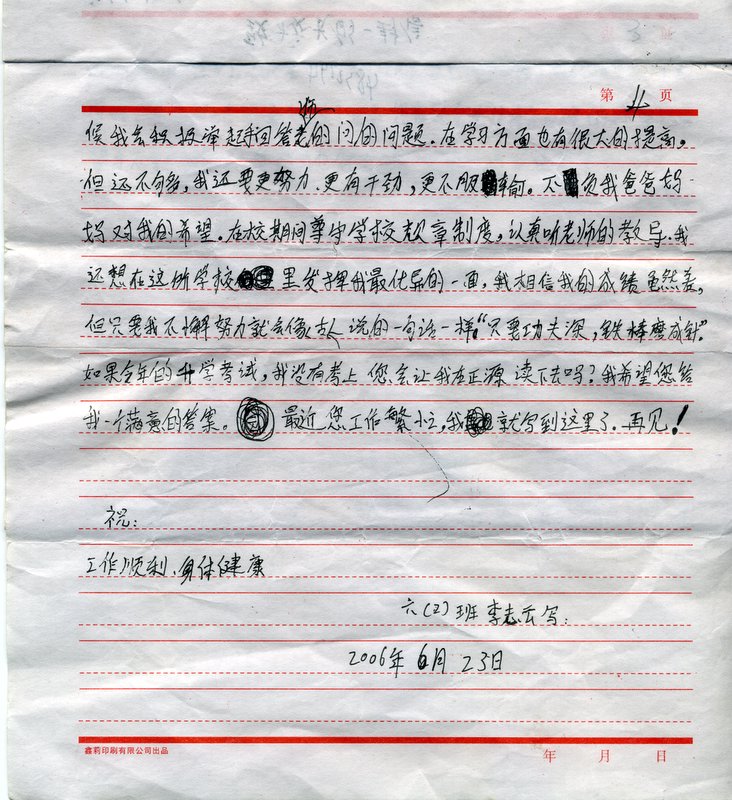 第 4 页
候我会积极举起手回答老师的问的问题。在学习方面也有很大的提高。
但还不够，我还要更努力、更有干劲，更不服输。不负我爸爸妈
妈对我的希望。在校期间尊守学校规章制度，认真听老师的教导。我
还想在这所学校里发挥我最优异的一面，我相信我的成绩虽然差，
但只要我不懈努力就会像古人说的一句话一样，“只要功夫深，铁棒磨成针”。
如果今年的升学考试，我没有考上您会让我在正源读下去吗？我希望您给
我一个满意的答案。最近您工作繁忙，我就写到这里了．再见！
祝：
工作顺利、身体健康
六（2）班李志云写：
2006年6月23日
鑫莉印刷有限公司出品
年 月 日